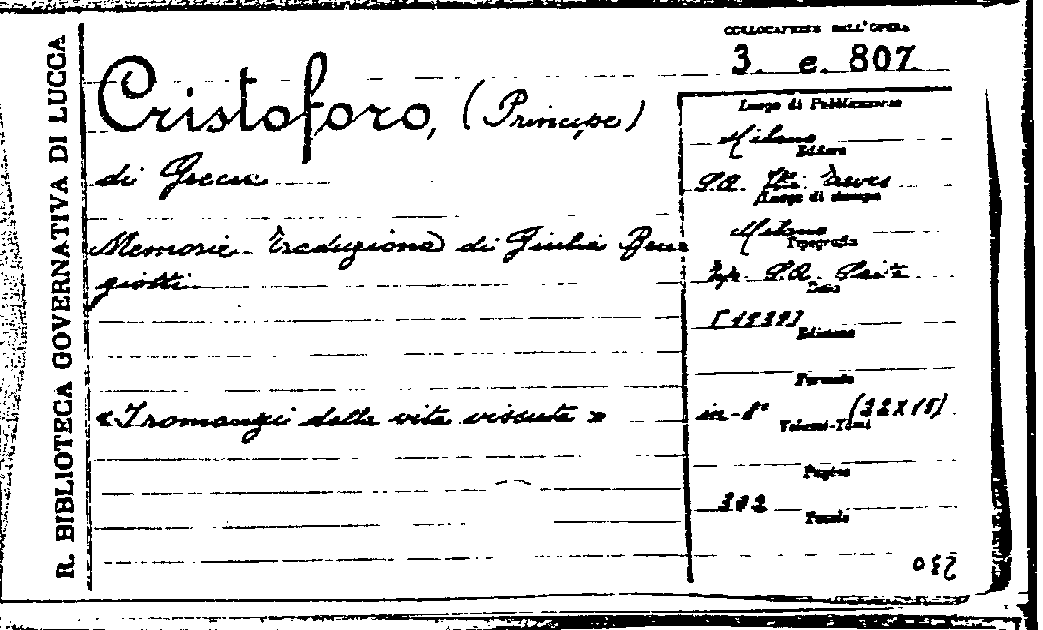 R. BIBLIOTECA GOVERNATIVA DI LUCCA
COLLOCAZIONE DELL'OPERA
3. e. 807
Cristoforo, (Principe)
di Grecia
Memorie - Traduzione di Giulia
giotti
«I romanzi della vita vissuta»
Luogo di Pubblicazione
Milano
Editore
S.A. Treves
Luogo di stampa
Milano
Tipografia
S.A.
Data
[1939]
Edizione
Formato
in-8° (22X15)
Volumi-Tomi
Pagine
302
Tavole
230